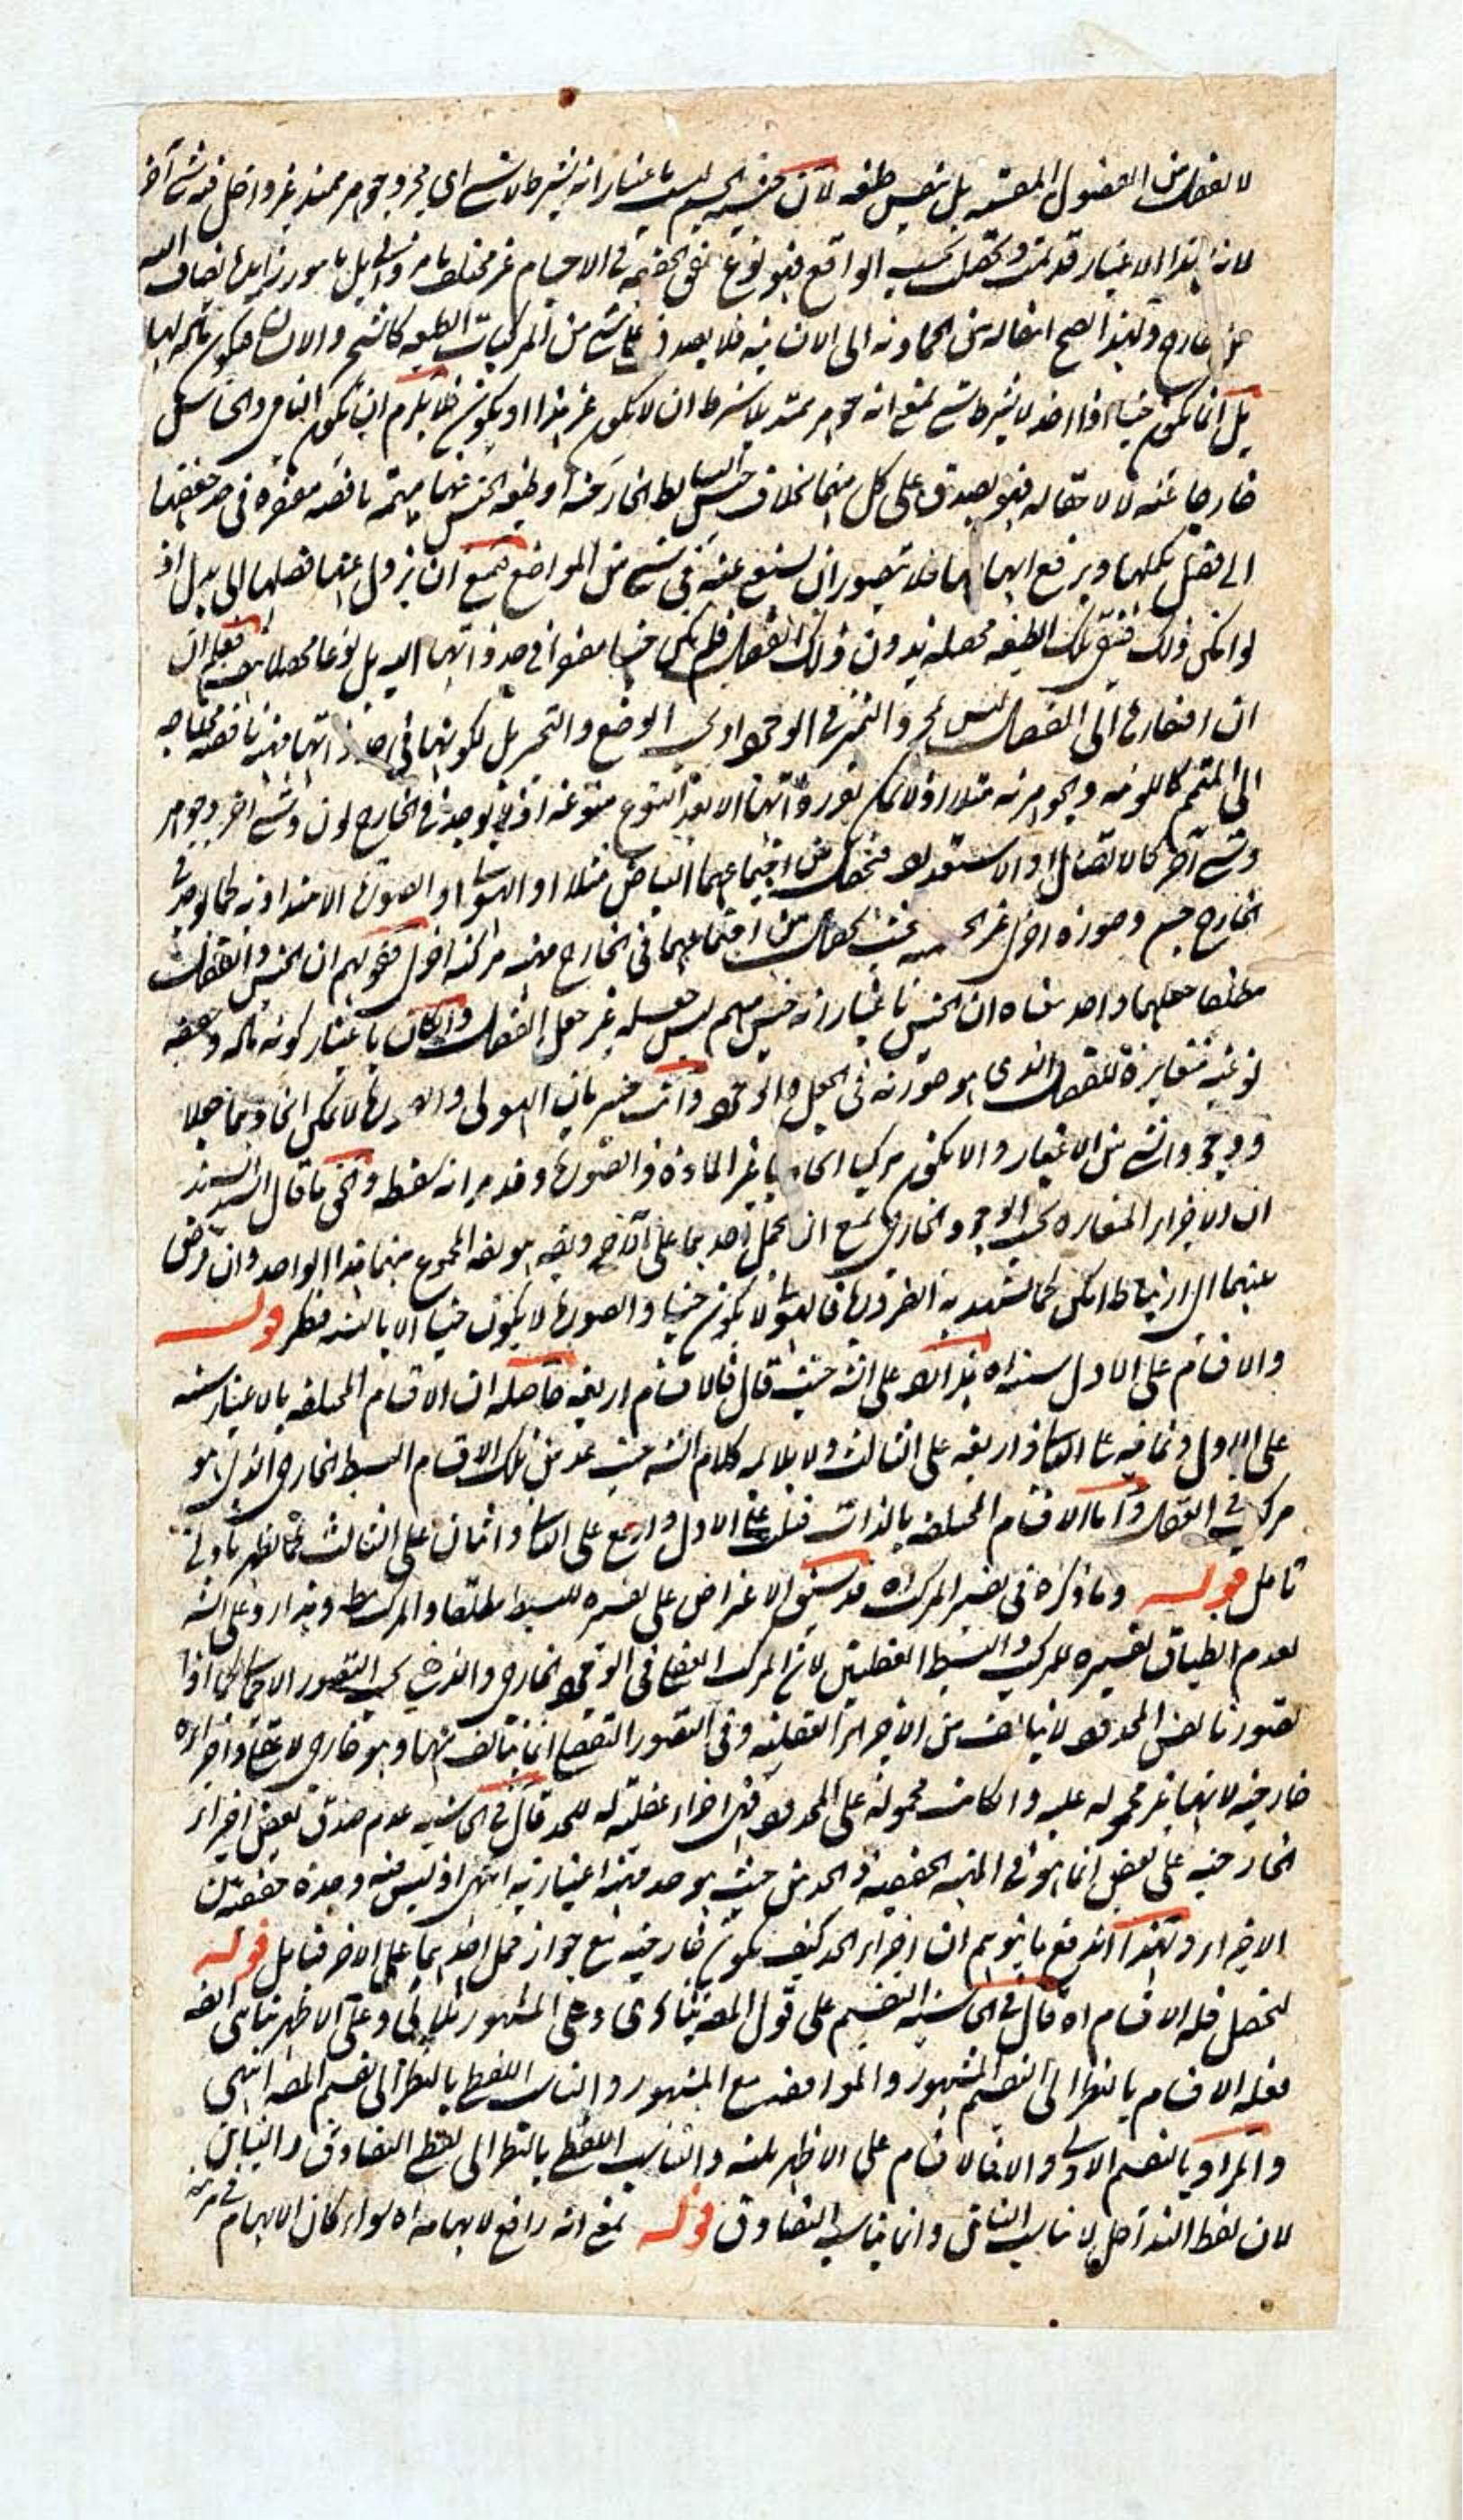 لا لفصل من الفصول المقسمة بل بنفس طبيعته لأن جنسية الجسم ليست باعتبار انه بشرط لا شيء اي مجرد جوهر ممتد غير داخل فيه شيء آخر
لانه بهذا الاعتبار قد تمت وتحصل بحسب الواقع فهو نوع حقيقي في الاجسام غير مختلف بامر ذاتي بل بامور زايدة تضاف اليه
من خارج ولهذا يصح انتقاله من الجمادية الى الانسانية فلا يصدق على شيء من المركبات الطبيعية كالشجر والانسان فيكون مادة لها
بل انما يكون جنسا اذا اخذ لا بشرط شيء بمعنى انه جوهر ممتد بلا شرط ان لا يكون غير هذا او يكون فلا يلزم ان يكون النامي والحساس
خارجا عنه لاحقا له فهو يصدق على كل منهما بخلاف جنس البسائط الخارجية او طبيعة الجنس منها مبهمة ناقصة مفتقرة في حد حقيقتها
الى فصل يكملها ويرفع ابهامها فلا يتصور ان يستغنى عنه في شيء من المواضع فيمتنع ان يزول عنها فصلها الى بدل اذ
لو امكن ذلك فتبقى تلك الطبيعة محصلة بدون ذلك الفصل فلم يكن جنسا مفتقرا في حد ذاتها اليه بل نوعا محصلا بنفسه فعلم ان
ان افتقارها الى الفصل ليس لمجرد التميز في الوجود او في الوضع والتحيز بل لكونها في حد ذاتها مبهمة ناقصة محتاجة
الى المتمم كاللونية والجوهرية مثلا اذ لا يمكن تقرر ذاتها الا بعد التنوع متنوعة اذ لا يوجد في الخارج لون وشيء آخر وجوهر
وشيء آخر كالاتصال او الاستعداد فيحصل من اجتماعهما البياض مثلا او الهيولى او الصورة الامتدادية كما يوجد في
الخارج جسم وصورة اخرى غير الجسمية بحيث يحصل من اجتماعهما في الخارج مهية مركبة اخرى فقولهم ان الجنس والفصل
مطلقا جعلهما واحد معناه ان الجنس باعتبار انه جنس مبهم ليس جعله غير جعل الفصل وان كان باعتبار كونه مادة وحقيقة
نوعية متغايرة للفصل الذي هو صورته في الجعل والوجود وانت خبير بان الهيولى والصورة لا يمكن اتحادهما جعلا
ووجودا بشيء من الاعتبار والا يكون مركبا اتحاديا غير المادة والصورة وقد مر انه سفسطة وانى ما قال السيد السند
ان الاجزاء المتغايرة بحسب الوجود الخارجي يمتنع ان يحمل احدهما على الآخر ويقال هو هو المجموع منهما هذا الواحد وان فرض
بينهما اي ارتباط امكن كما تشهد به الضرورة فالهيولى لا يكون جنسا والصورة لا يكون جنسا الا بالتشبيه فتفكر قوله
والاقسام على الاول ستة اه هذا رد على الشه حيث قال فالاقسام اربعة حاصله ان الاقسام المختلفة بالاعتبار ستة
على الاول وثمانية على الثاني واربعة على الثالث ولا يلائمه كلام الشه حيث عد من تلك الاقسام البسيط الخارجي الذي هو
مركب في العقل واما الاقسام المختلفة بالذات فثلث على الاول واربع على الثاني واثنان على الثالث كما يظهر بادنى
تأمل قوله وما ذكره في تفسير المركب اه قد سبق الاعتراض على تفسيره للبسيط مطلقا والمركب مط وهذا رد على الشه
لعدم انطباق تفسيره للمركب والبسيط العقليين لأن المركب العقلي في الوجود الخارجي والذهني بحسب التصور الاجمالي كما اذا
تصورنا نفس المحدود لا يتالف من الاجزاء العقلية وفي التصور التفصيلي انما يتالف منها وهو خارجي لا عقلي واجزاءه
خارجية لانها غير محمولة عليه وان كانت محمولة على المحدود فهي اجزاء عقلية له للحد قال في الحاشية عدم صدق بعض اجزاء
الخارجية على بعض انما هو في المهية الحقيقية والحد من حيث هو حد مهية اعتبارية انتهى اذ ليس فيه وحدة حقيقة بين
الاجزاء وبهذا اندفع ما يتوهم ان اجزاء الحد كيف يكون خارجية مع جواز حمل احديهما على الاخر فتأمل قوله
لتحصل قلة الاقسام اه قال في الحاشية التقسيم على قول المصه ثنائي وعلى المشهور ثلاثي وعلى الاظهر ثنائي ايضه
فقلة الاقسام بالنظر الى التقسيم المشهور والموافقة مع المشهور والتناسب اللفظي بالنظر الى تقسيم المصه انتهى
والمراد بالتقسيم الاولي والا فالاقسام على الاظهر ثلثة والتناسب اللفظي بالنظر الى لفظ التصادق والتباين
لان لفظ التداخل لا يناسب التنافي وانما يناسب التصادق قوله بمعنى انه رافع لابهامه اه سواء كان الابهام في مرتبة